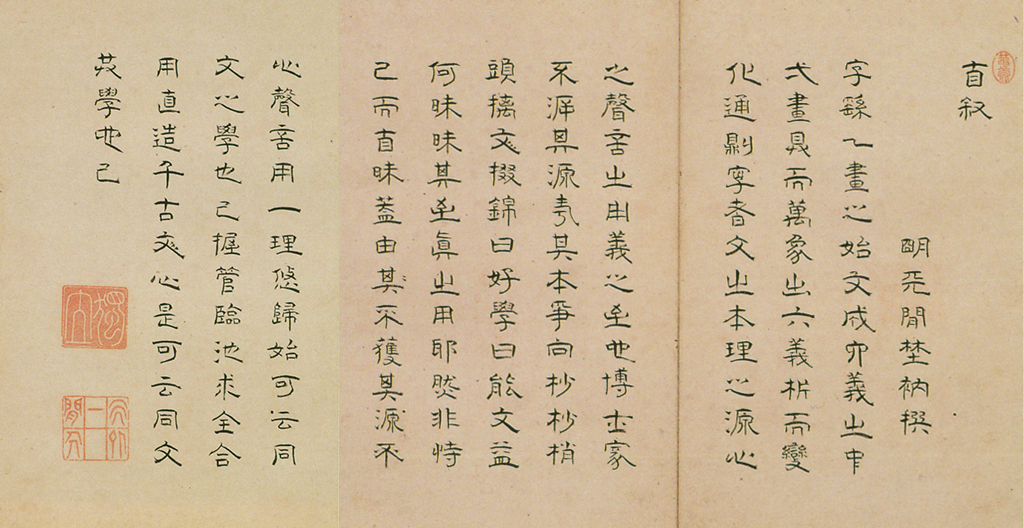 自叙
明兂閒埜衲撰
字繇乀畫心始文成六義之中
弌畫具而萬象出六義析而變
化通剔字者文之本理心源心
之聲言之用義心至也博士家
不涯其源夲其本爭向杪杪梢
頭摛文掇錦曰好學曰能文益
何昧昧其至眞之用耶然非恃
己而自昧葢由其不獲其源不
心聲言用一理悠歸始可云同
文心學也已握管臨池求全合
用直造千古文心是可云同文
共學也已